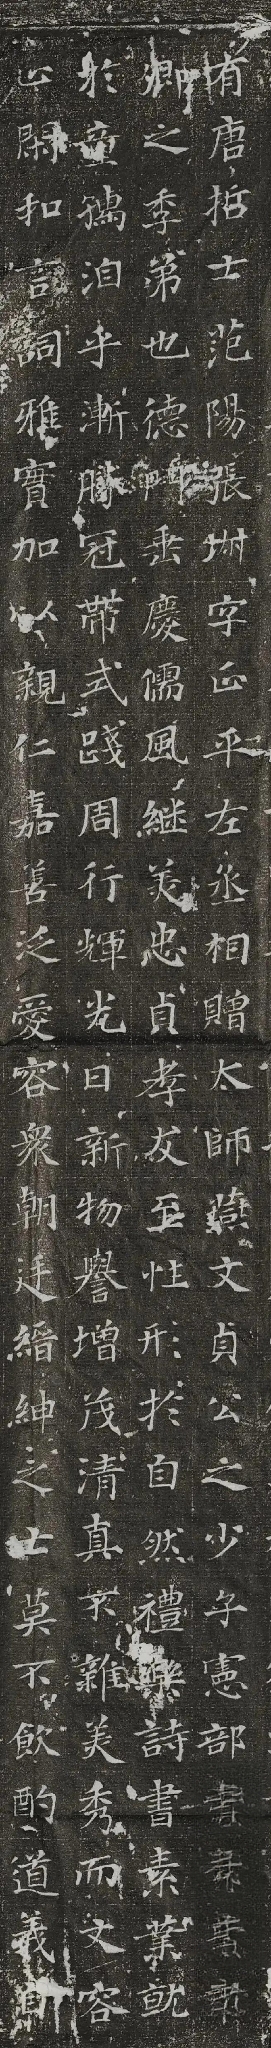 有唐哲士范陽張埱字正平左丞相贈太師燕文貞公之少子憲部尚書
卿之季弟也德門垂慶儒風継美忠貞孝友至性形於自然禮樂詩書素業就
於童孺洎乎漸勝冠帶式踐周行輝光日新物譽增茂清真不雜美秀而文容
止閑和言詞雅實加以親仁嘉善泛愛容衆朝廷縉紳之士莫不飲酌道義